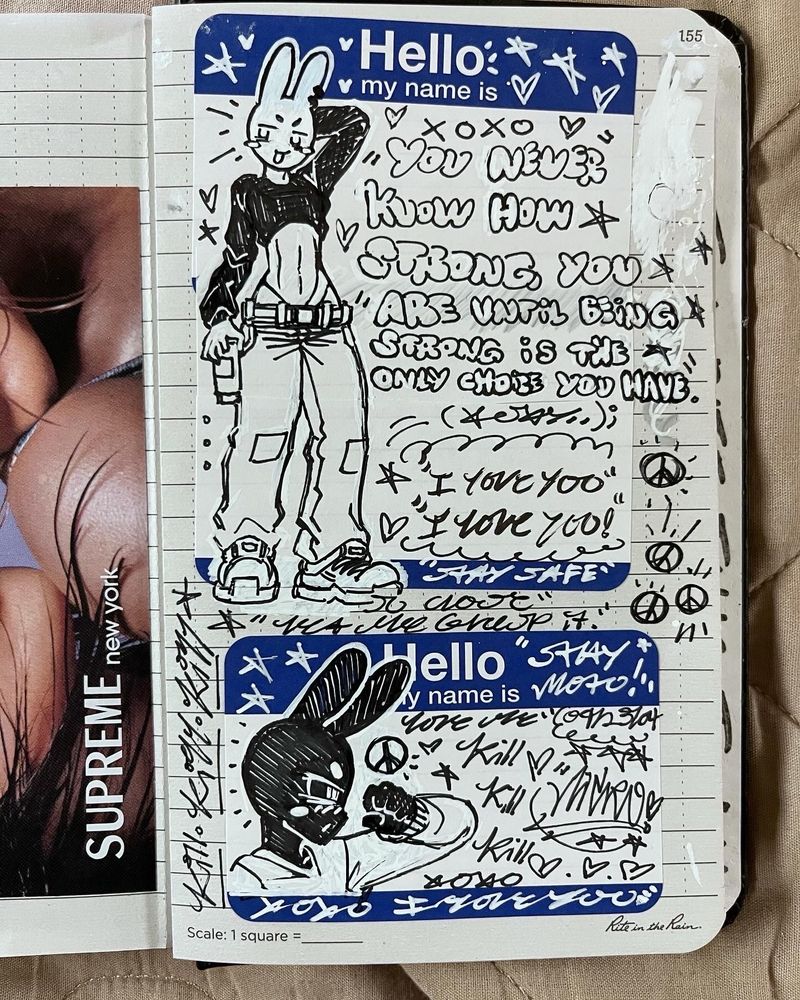 155
Hello
my name is
XOXO
"YOU NEVER
KNOW HOW
STRONG, YOU
"ARE UNTIL BEING
STRONG IS THE
ONLY CHOICE YOU HAVE."
"I LOVE YOO"
"I LOVE YOO!
"STAY SAFE"
SUPREME new york
Hello
my name is
"STAY
MOTO!"
LOVE ME"
Kill
Kill
Kill
XOXO
XOXO I LOVE YOO"
Scale: 1 square =
Rite in the Rain.